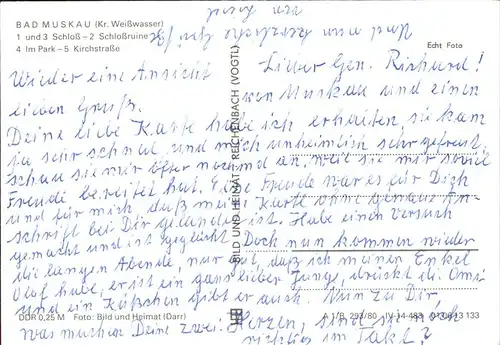 BAD MUSKAU (Kr. Weißwasser)
1 und 3 Schloß – 2 Schloßruine
4 Im Park – 5 Kirchstraße
Echt Foto
Lieber Gen. Richard!
Wieder eine Ansicht von Muskau und einen
lieben Gruß.
Deine liebe Karte habe ich erhalten, sie kam
ja sehr schnell und mich unheimlich sehr gefreut,
schau sie mir öfter nochmal an, weil sie mir soviel
Freude bereitet hat. Eine Freude war es für Dich
und für mich, daß meine Karte ohne genaue An-
schrift bei Dir gelandet ist. Habe einen Versuch
gemacht und ist geglückt. Doch nun kommen wieder
die langen Abende, nur gut, daß ich meinen Enkel
Olaf habe, er ist ein ganz lieber Junge, drückt die Omi
und ein Küßchen gibt er auch. Nun zu Dir
was machen Deine zwei Herzen, sind sie noch
richtig im Takt?
BILD UND HEIMAT REICHENBACH (VOGTL)
DDR 0,25 M Foto: Bild und Heimat (Darr)
A 1/B 293/80 IV-14-483 01 06 13 133